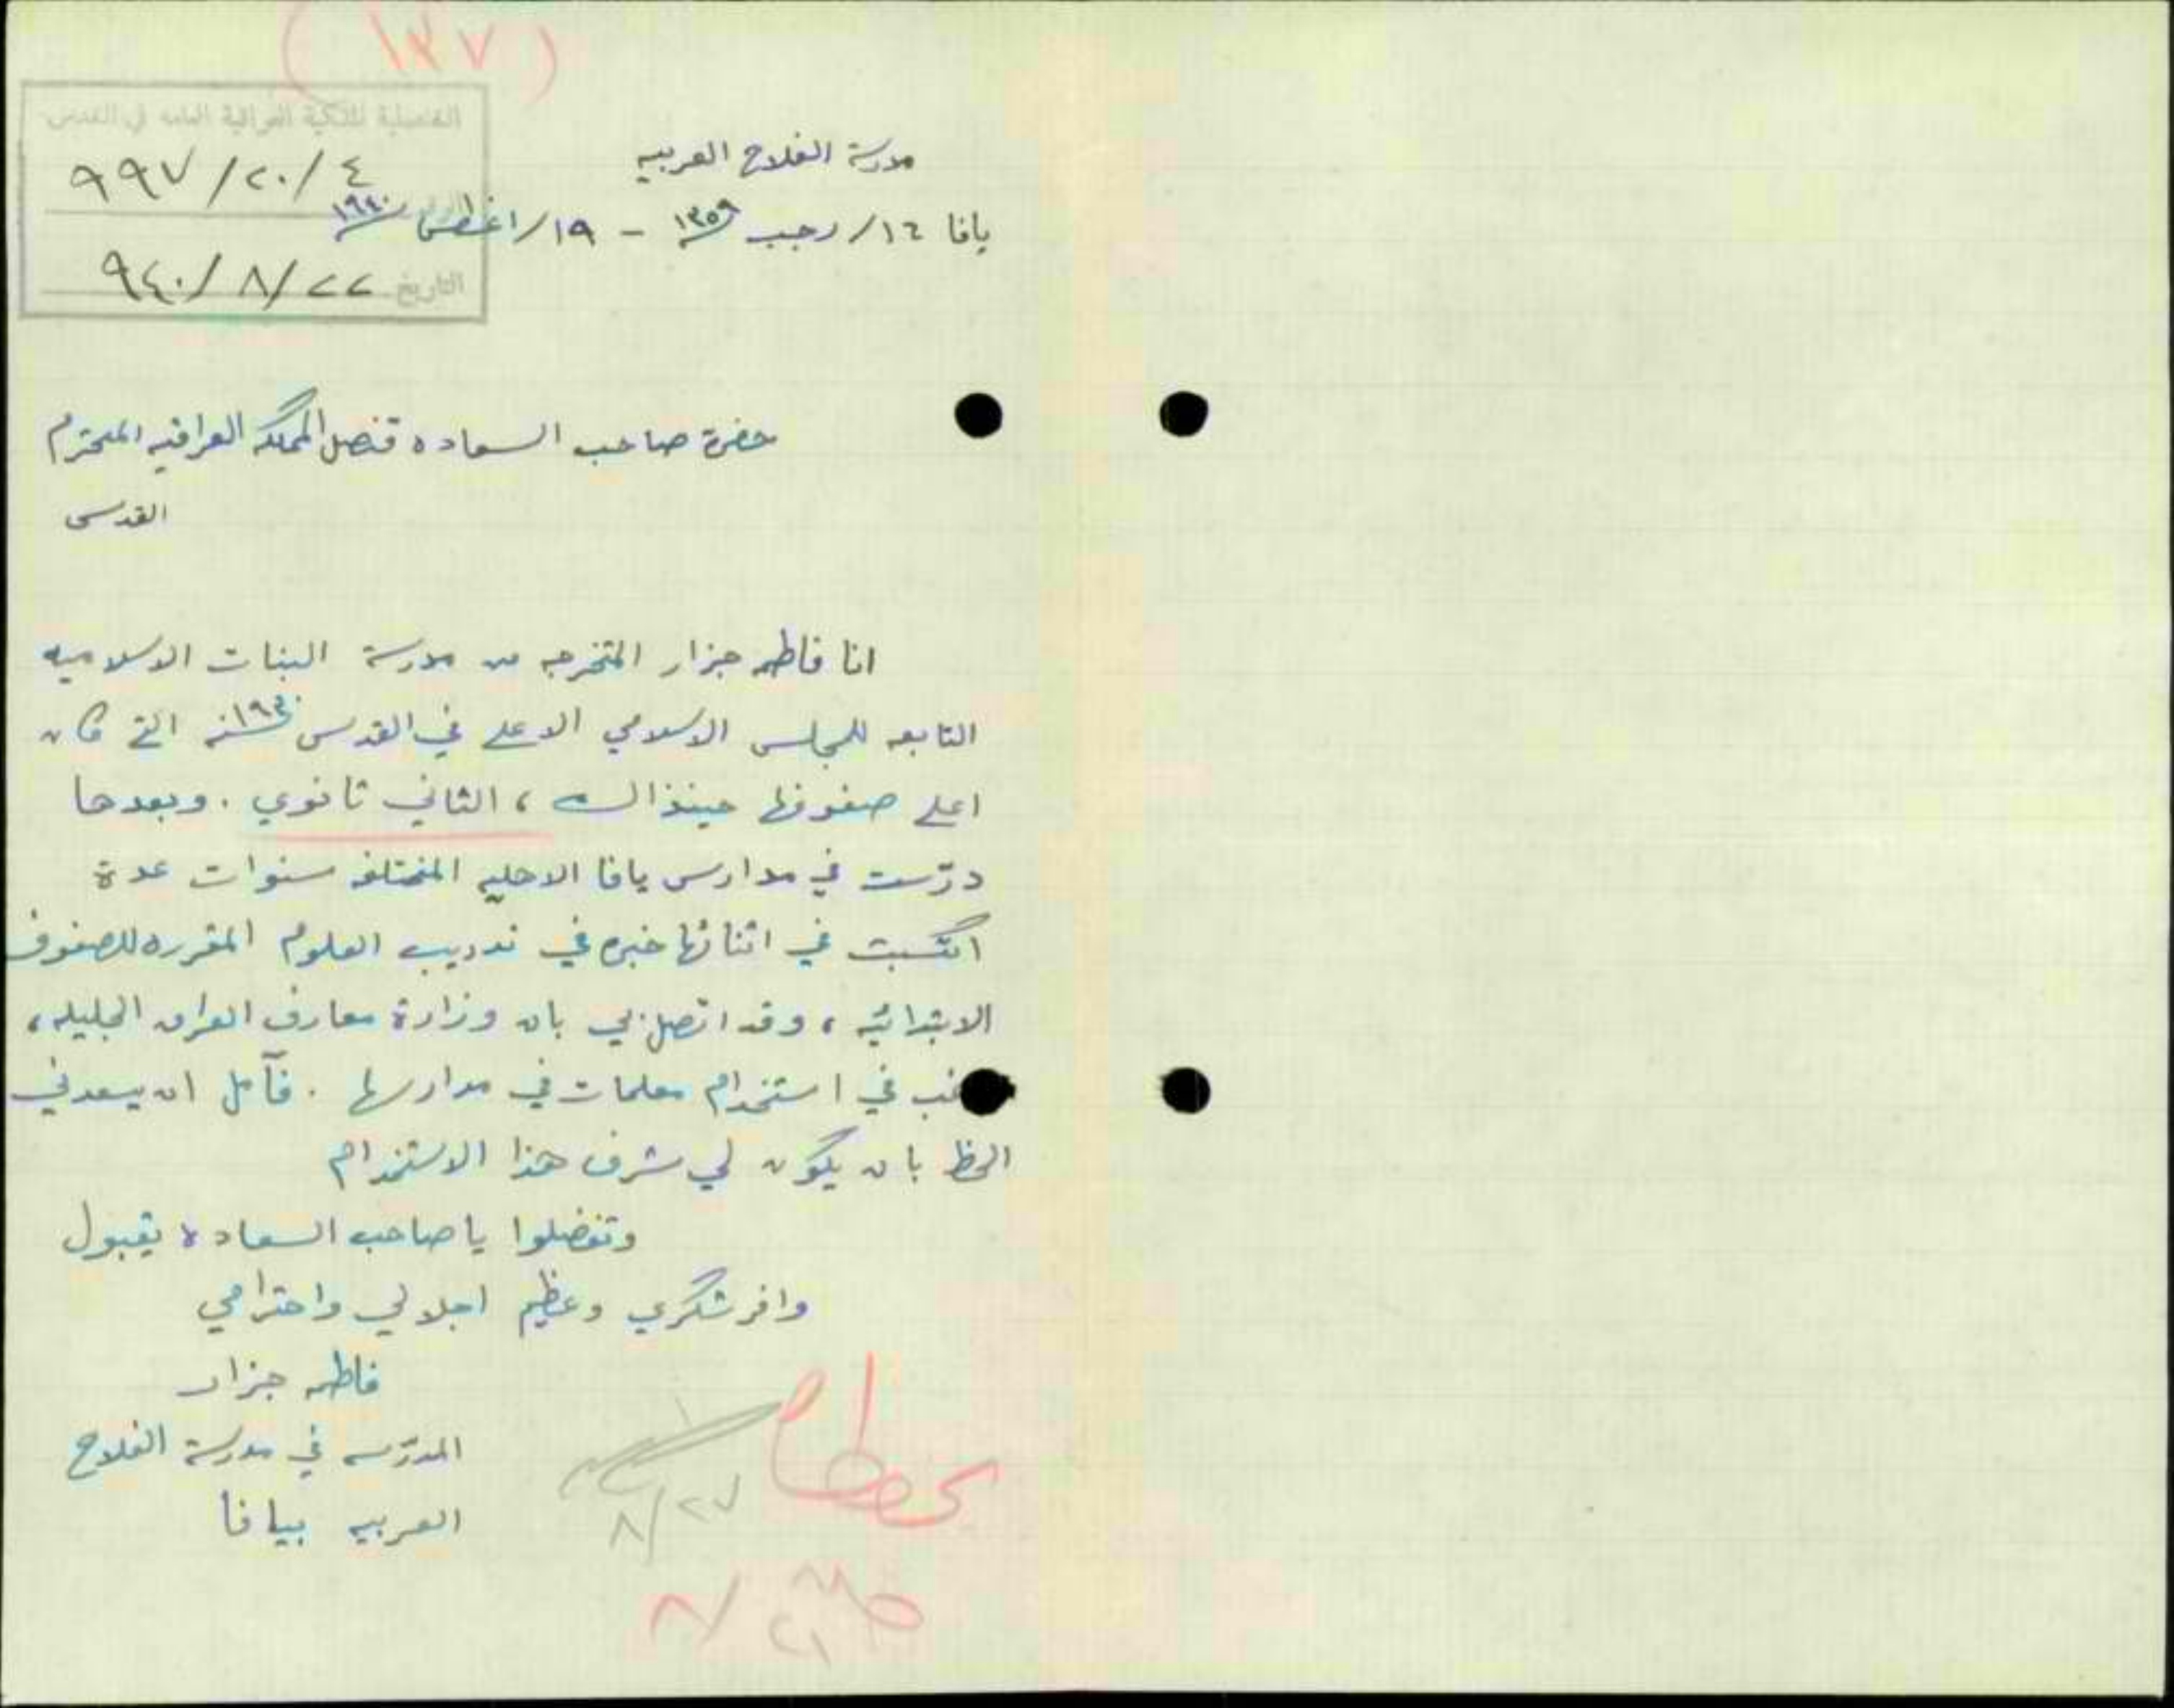 (١٣٧)
القنصلية الملكية العراقية العامة في القدس
٩٩٧/٢٠/٤
التاريخ ٩٤٠/٨/٢٢
مدرسة الفلاح العربيه
يافا ١٦/رجب ١٣٥٩ - ١٩/اغسطس ١٩٤٠
حضرة صاحب السعاده قنصل المملكه العراقيه المحترم
القدس
انا فاطمه جزار المتخرجه من مدرسة البنات الاسلاميه
التابعه للمجلس الاسلامي الاعلى في القدس سنة التي كان
اعلى صفوفها حينذاك ، الثاني ثانوي . وبعدها
درّست في مدارس يافا الاهليه المختلفه سنوات عدة
اكتسبت في اثنائها خبره في تدريب العلوم المقرره للصفوف
الابتدائيه ، وقد اتصل بي بان وزارة معارف العراق الجليله ،
في استخدام معلمات في مدارسها . فآمل ان يسعدني
الحظ بان يكون لي شرف هذا الاستخدام
وتفضلوا يا صاحب السعادة بقبول
وافر شكري وعظيم اجلالي واحترامي
فاطمه جزار
المدرّسه في مدرسة الفلاح
العربيه بيافا
٨/٢٧